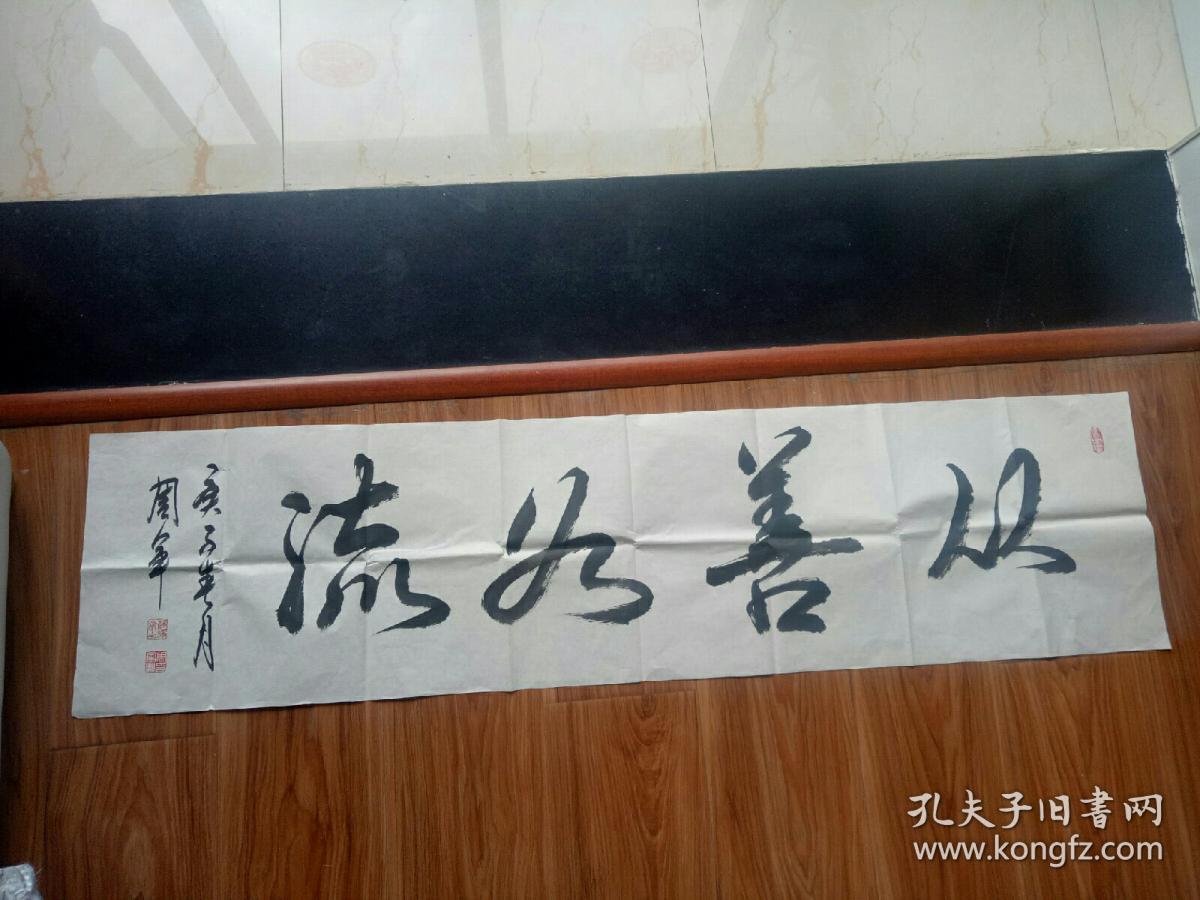 从善如流
庚子年一月
周军
孔夫子旧書网
www.kongfz.com